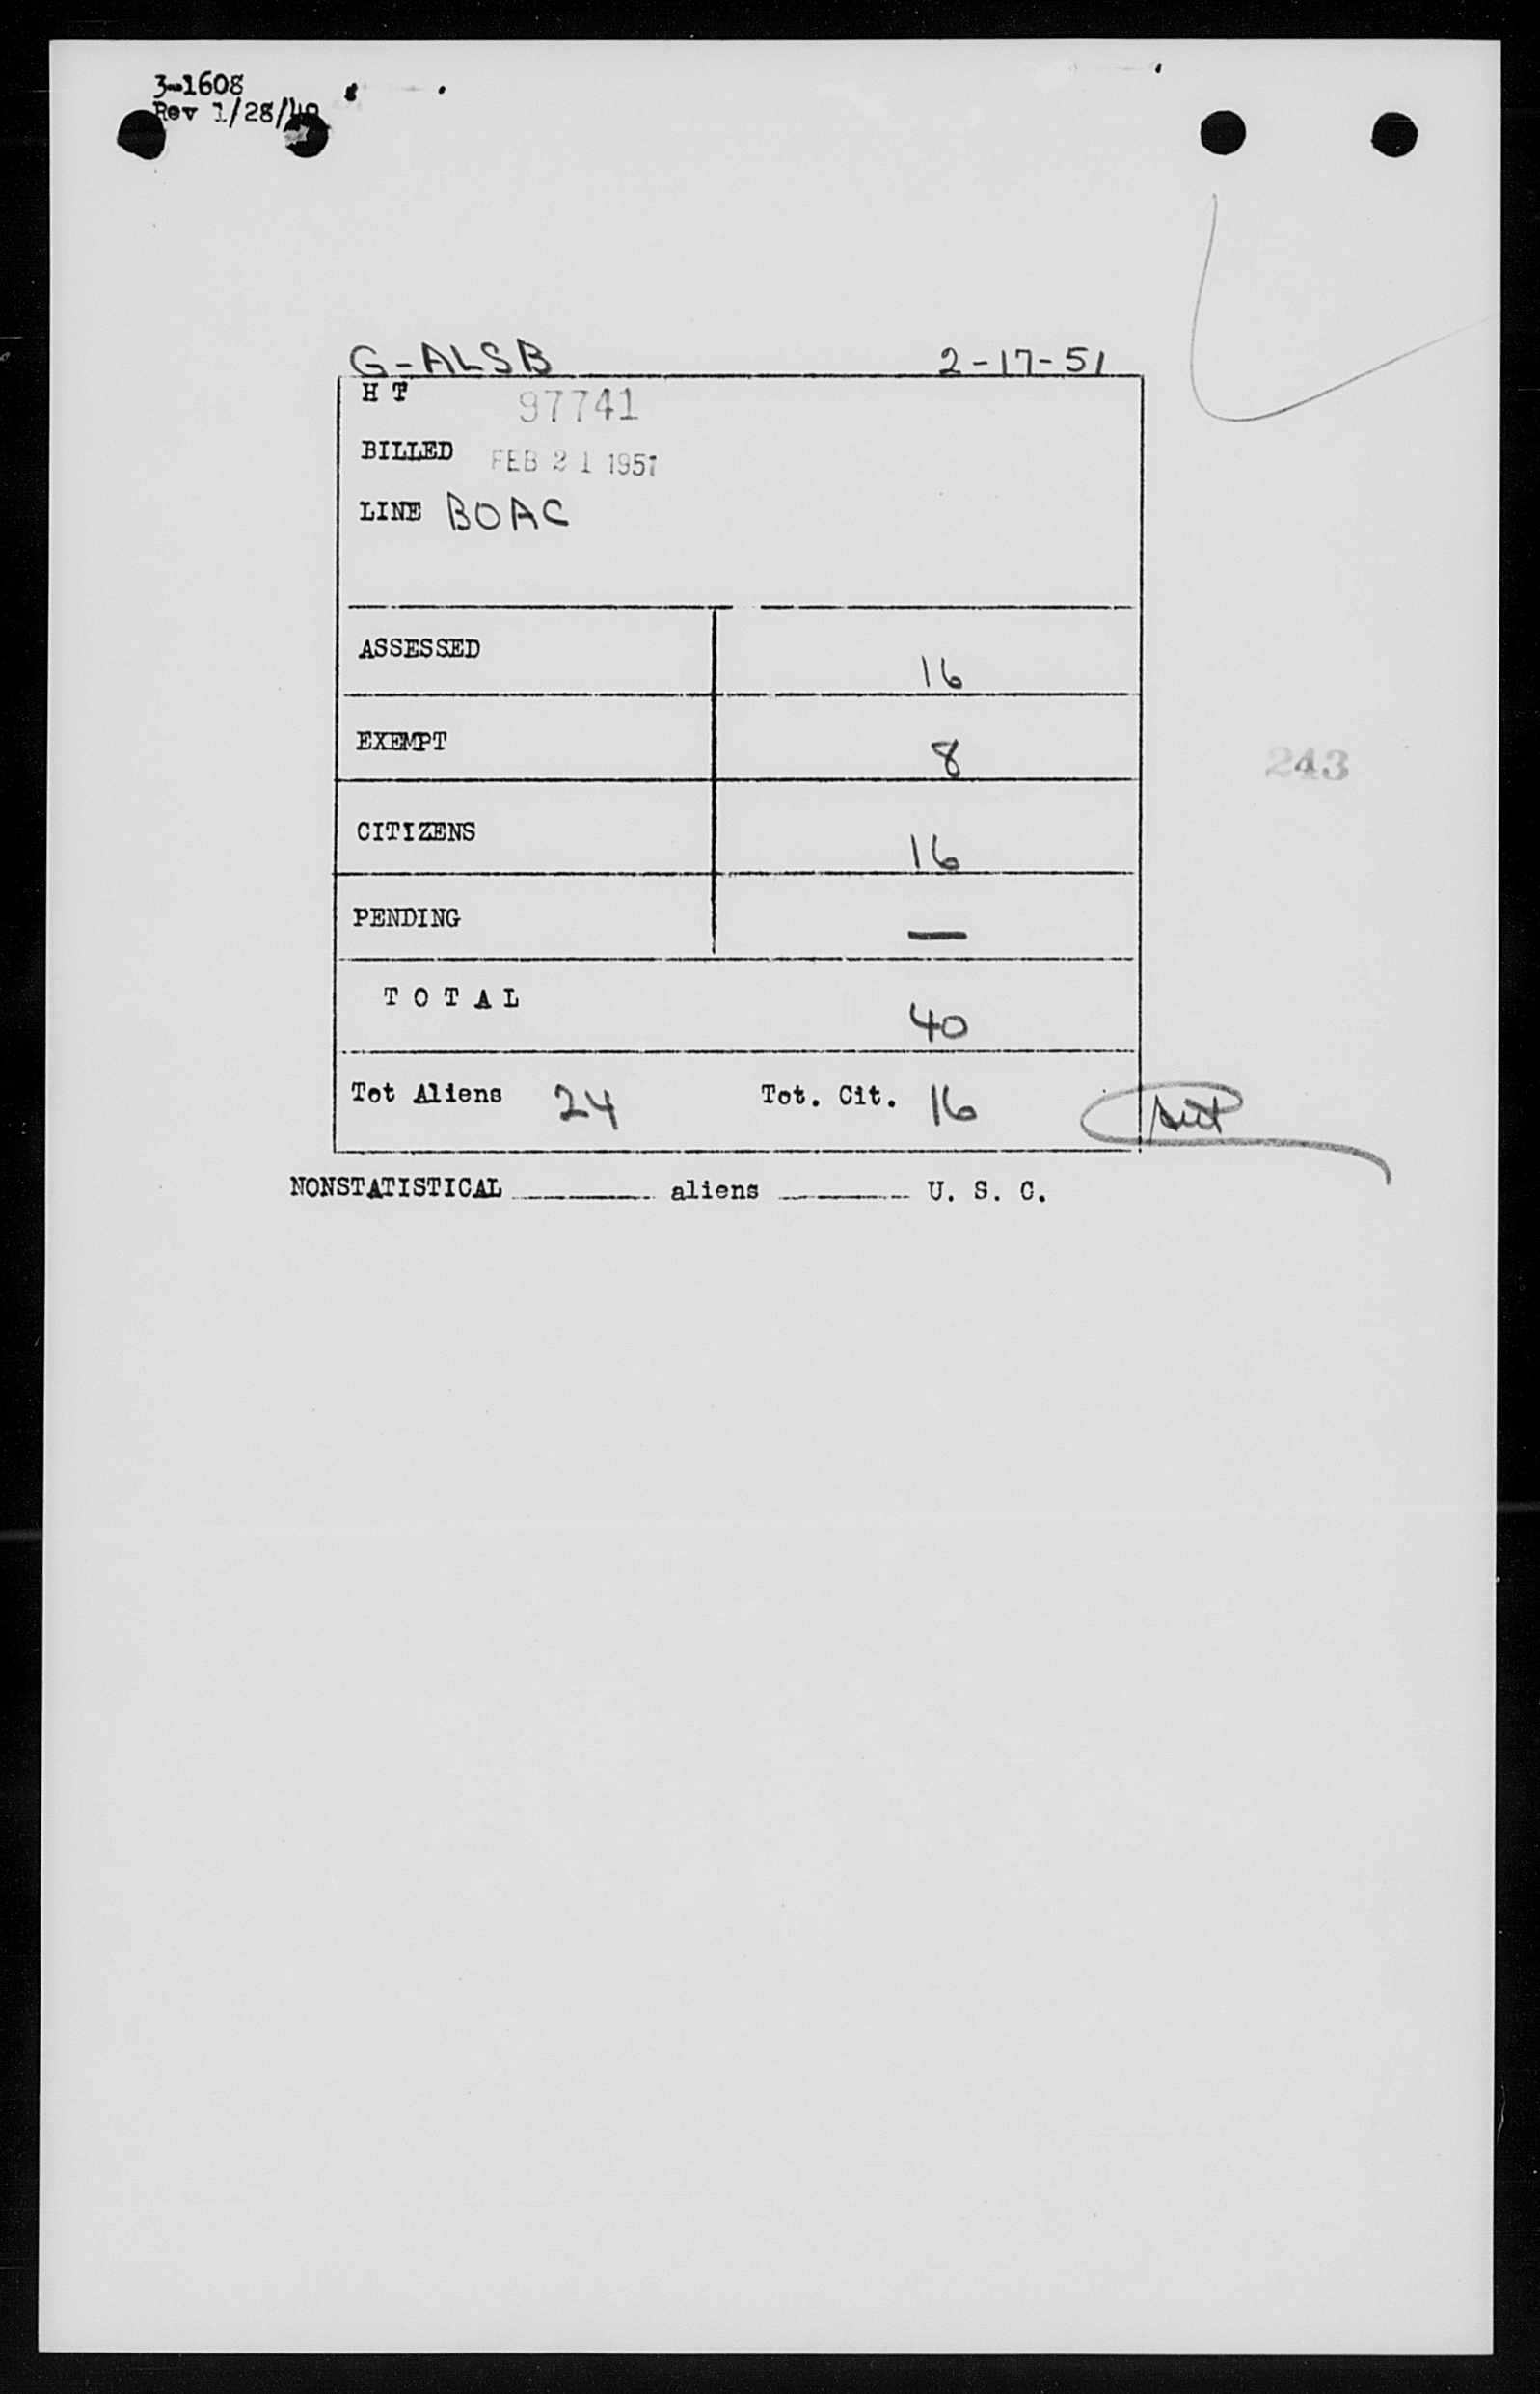 3-1608
Rev 1/28/49
G-ALSB 2-17-51
H T 97741
BILLED FEB 21 1951
LINE BOAC
ASSESSED 16
EXEMPT 8
243
CITIZENS 16
PENDING —
T O T A L 40
Tot Aliens 24 Tot. Cit. 16
NONSTATISTICAL ________ aliens ________ U. S. C.